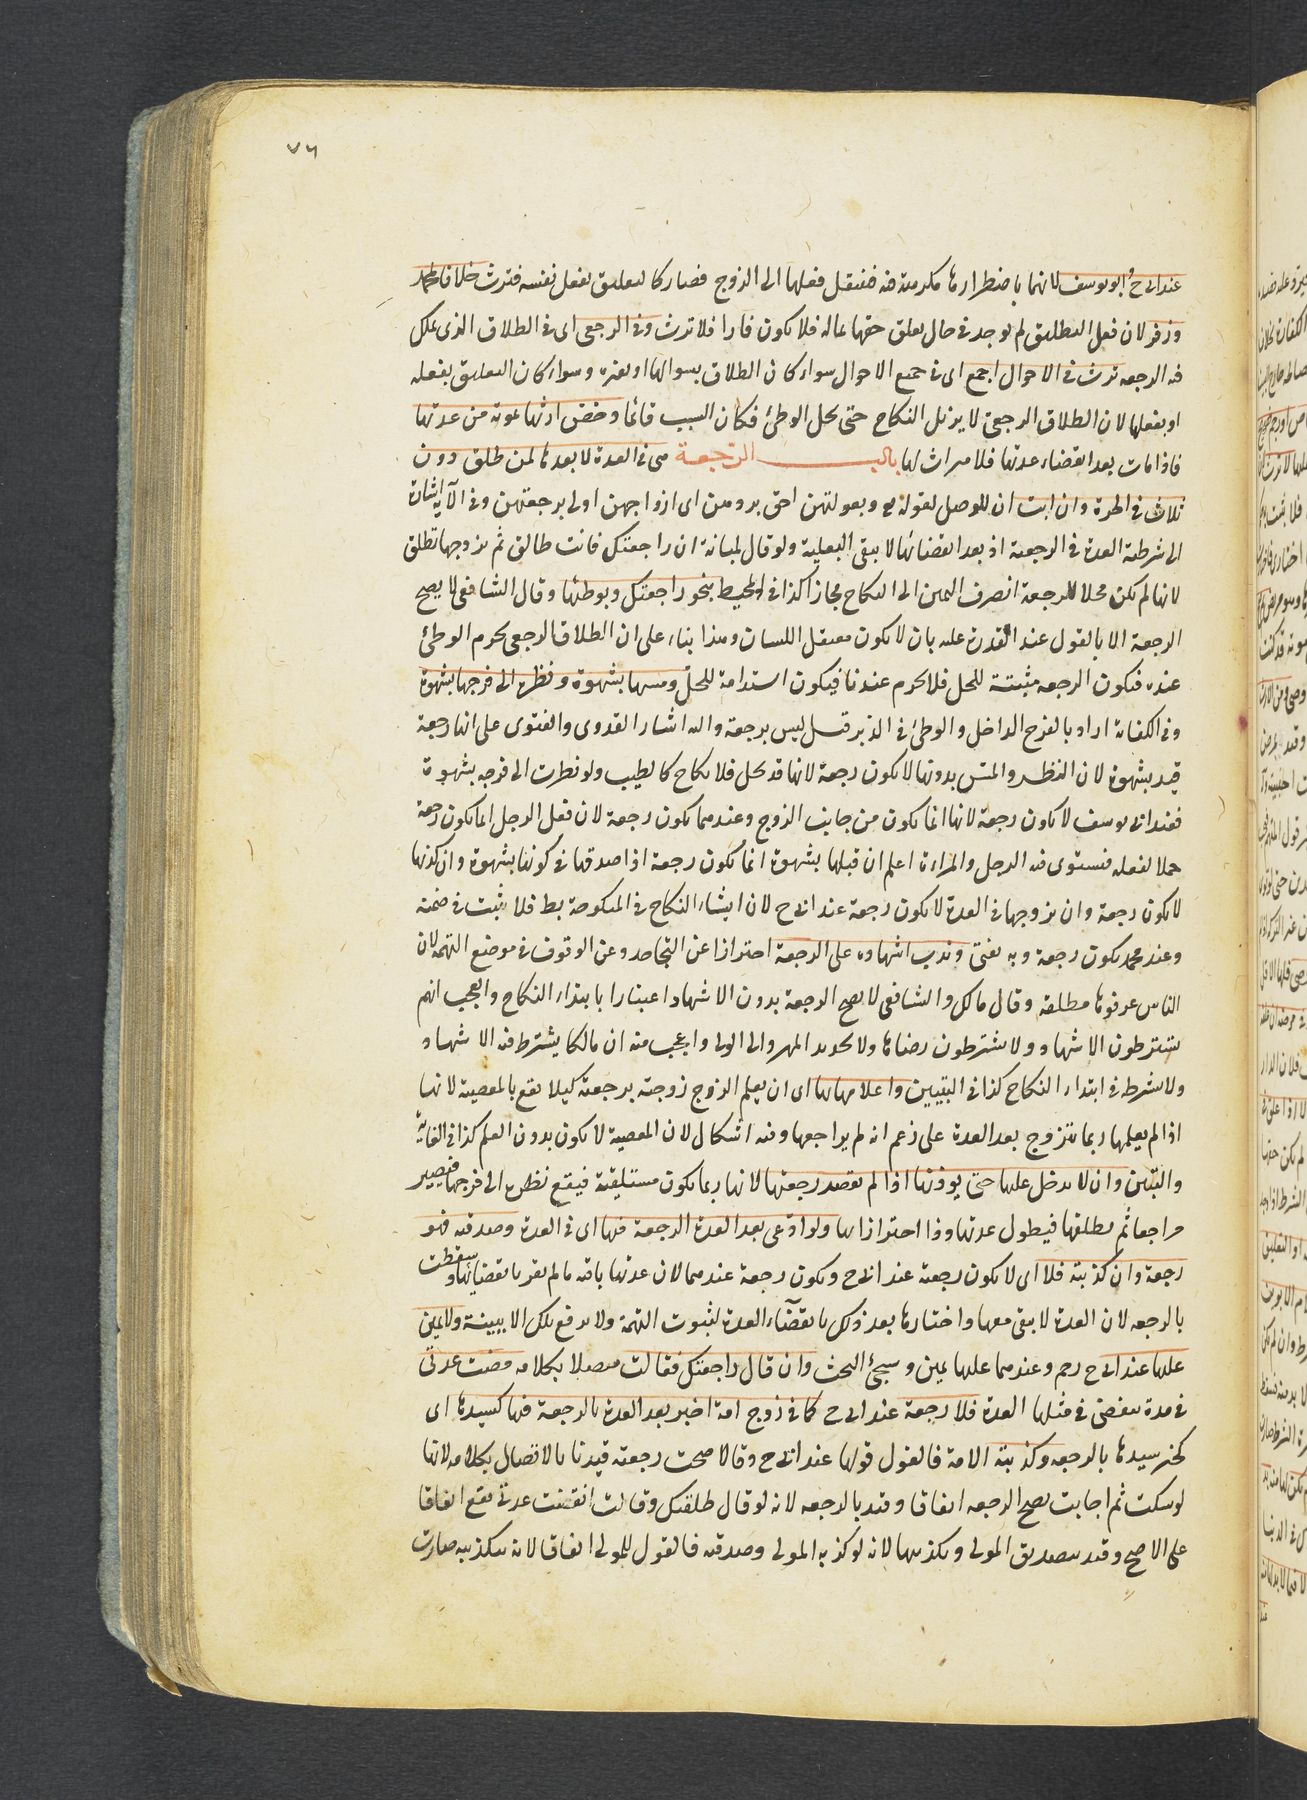 ٧٦
عند ابى ح وابو يوسف لانهما باضطرارها مكرهة فيه فينقل فعلها الى الزوج فصار كالتعليق بفعل نفسه فترث خلافا لمحمد
وزفر لان فعل التطليق لم يوجد فى حال تعلق حقها بماله فلا يكون فارا فلا ترث وفى الرجعى اى فى الطلاق الذى يملك
فيه الرجعه ترث فى الاحوال اجمع اى فى جميع الاحوال سواء كان الطلاق بسوالها او بغيره وسواء كان التعليق بفعله
او بفعلها لان الطلاق الرجعى لا يزيل النكاح حتى يحل الوطئ فكان السبب قائما وخص ارثها بموته من عدتها
فاذا مات بعد انقضاء عدتها فلا ميراث لها باب الرجعة هى فى العدة لا بعدها لمن طلق دون
ثلاث فى الحرة وان ابت ان للوصل لقوله تع وبعولتهن احق بردهن اى ازواجهن اولى برجعتهن وفى الآية اشارة
الى شرطية العدة فى الرجعة اذ بعد انقضائها لا يبقى البعلية ولو قال لمبانة ان راجعتك فانت طالق ثم تزوجها تطلق
لانها لم تكن محلا للرجعة انصرف اليمين الى النكاح مجازا كذا فى المحيط بنحو راجعتك وبوطئها وقال الشافعى لا يصح
الرجعة الا بالقول عند القدرة عليه بان لا يكون معتقل اللسان وهذا بناء على ان الطلاق الرجعى يحرم الوطئ
عنده فتكون الرجعه مثبتة للحل فلا يحرم عندنا فيكون استدامة للحل ومسها بشهوة ونظره الى فرجها بشهوة
وفى الكفاية اراد بالفرج الداخل والوطئ فى الدبر قيل ليس برجعة واليه اشار القدورى والفتوى على انها رجعة
قيد بشهوة لان النظر والمس بدونها لا يكون رجعة لانها قد يحل فلا نكاح كالطبيب ولو نظرت الى فرجه بشهوة
فعند ابى يوسف لا يكون رجعة لانها انما يكون من جانب الزوج وعندهما يكون رجعة لان فعل الرجل انما يكون رجعة
حملا لفعله فيستوى فيه الرجل والمراءة اعلم ان قبلها بشهوة انما يكون رجعة اذا صدقها فى كونها بشهوة وان كذبها
لا يكون رجعة وان تزوجها فى العدة لا يكون رجعة عند ابى ح لان انشاء النكاح فى المنكوحة بط فلا يثبت فى ضمنه
وعند محمد يكون رجعة وبه يفتى وندب اشهاده على الرجعة احترازا عن التجاحد وعن الوقوف فى موضع التهمة لان
الناس عرفوها مطلقه وقال مالك والشافعى لا يصح الرجعة بدون الاشهاد اعتبارا بابتداء النكاح والعجب انهم
يشترطون الاشهاد ولا يشترطون رضاها ولا تحديد المهر والى الولى واعجب منه ان مالكا يشترط فيه الاشهاد
ولا يشترط فى ابتداء النكاح كذا فى التبيين واعلامها بها اى ان يعلم الزوج زوجته برجعته كيلا تقع بالمعصية لانها
اذا لم يعلمها ربما تتزوج بعد العدة على زعم انه لم يراجعها وفيه اشكال لان المعصية لا يكون بدون العلم كذا فى الغاية
والتبيين وان لا يدخل عليها حتى يوذنها اذا لم يقصد رجعتها لانها ربما يكون مستلقية فيقع نظره الى فرجها فيصير
مراجعا ثم يطلقها فيطول عدتها وذا احترازا لها ولو ادعى بعد العدة الرجعة فيها اى فى العدة وصدقته فهو
رجعة وان كذبته فلا اى لا يكون رجعة عند ابى ح ويكون رجعة عندهما لان عدتها باقيه ما لم تقر بانقضائها وسقطت
بالرجعه لان العدة لا تبقى معها واخبارها بعد ذلك بانقضاء العدة لثبوت التهمة ولا يدفع تلك الا ببينة ولا يمين
عليها عند ابى ح رحم وعندهما عليها يمين وسيجئ البحث وان قال راجعتك فقالت متصلا بكلامه مضت عدتى
فى مدة تنقضى فى مثلها العدة فلا رجعة عند ابى ح كما فى زوج امة اخبر بعد العدة بالرجعة فيها كسيدها اى
كخبر سيدها بالرجعه وكذبته الامة فالقول قولها عند ابى ح وقالا صحت رجعته قيدنا بالاتصال بكلامه لانها
لو سكتت ثم اجابت تصح الرجعه اتفاقا وقيد بالرجعه لانه لو قال طلقتك وقالت انقضت عدتى تقع اتفاقا
على الاصح وقيد بتصديق المولى وتكذيبها لانه لو كذبه المولى وصدقته فالقول للمولى اتفاقا لانه بتكذيبه صارت